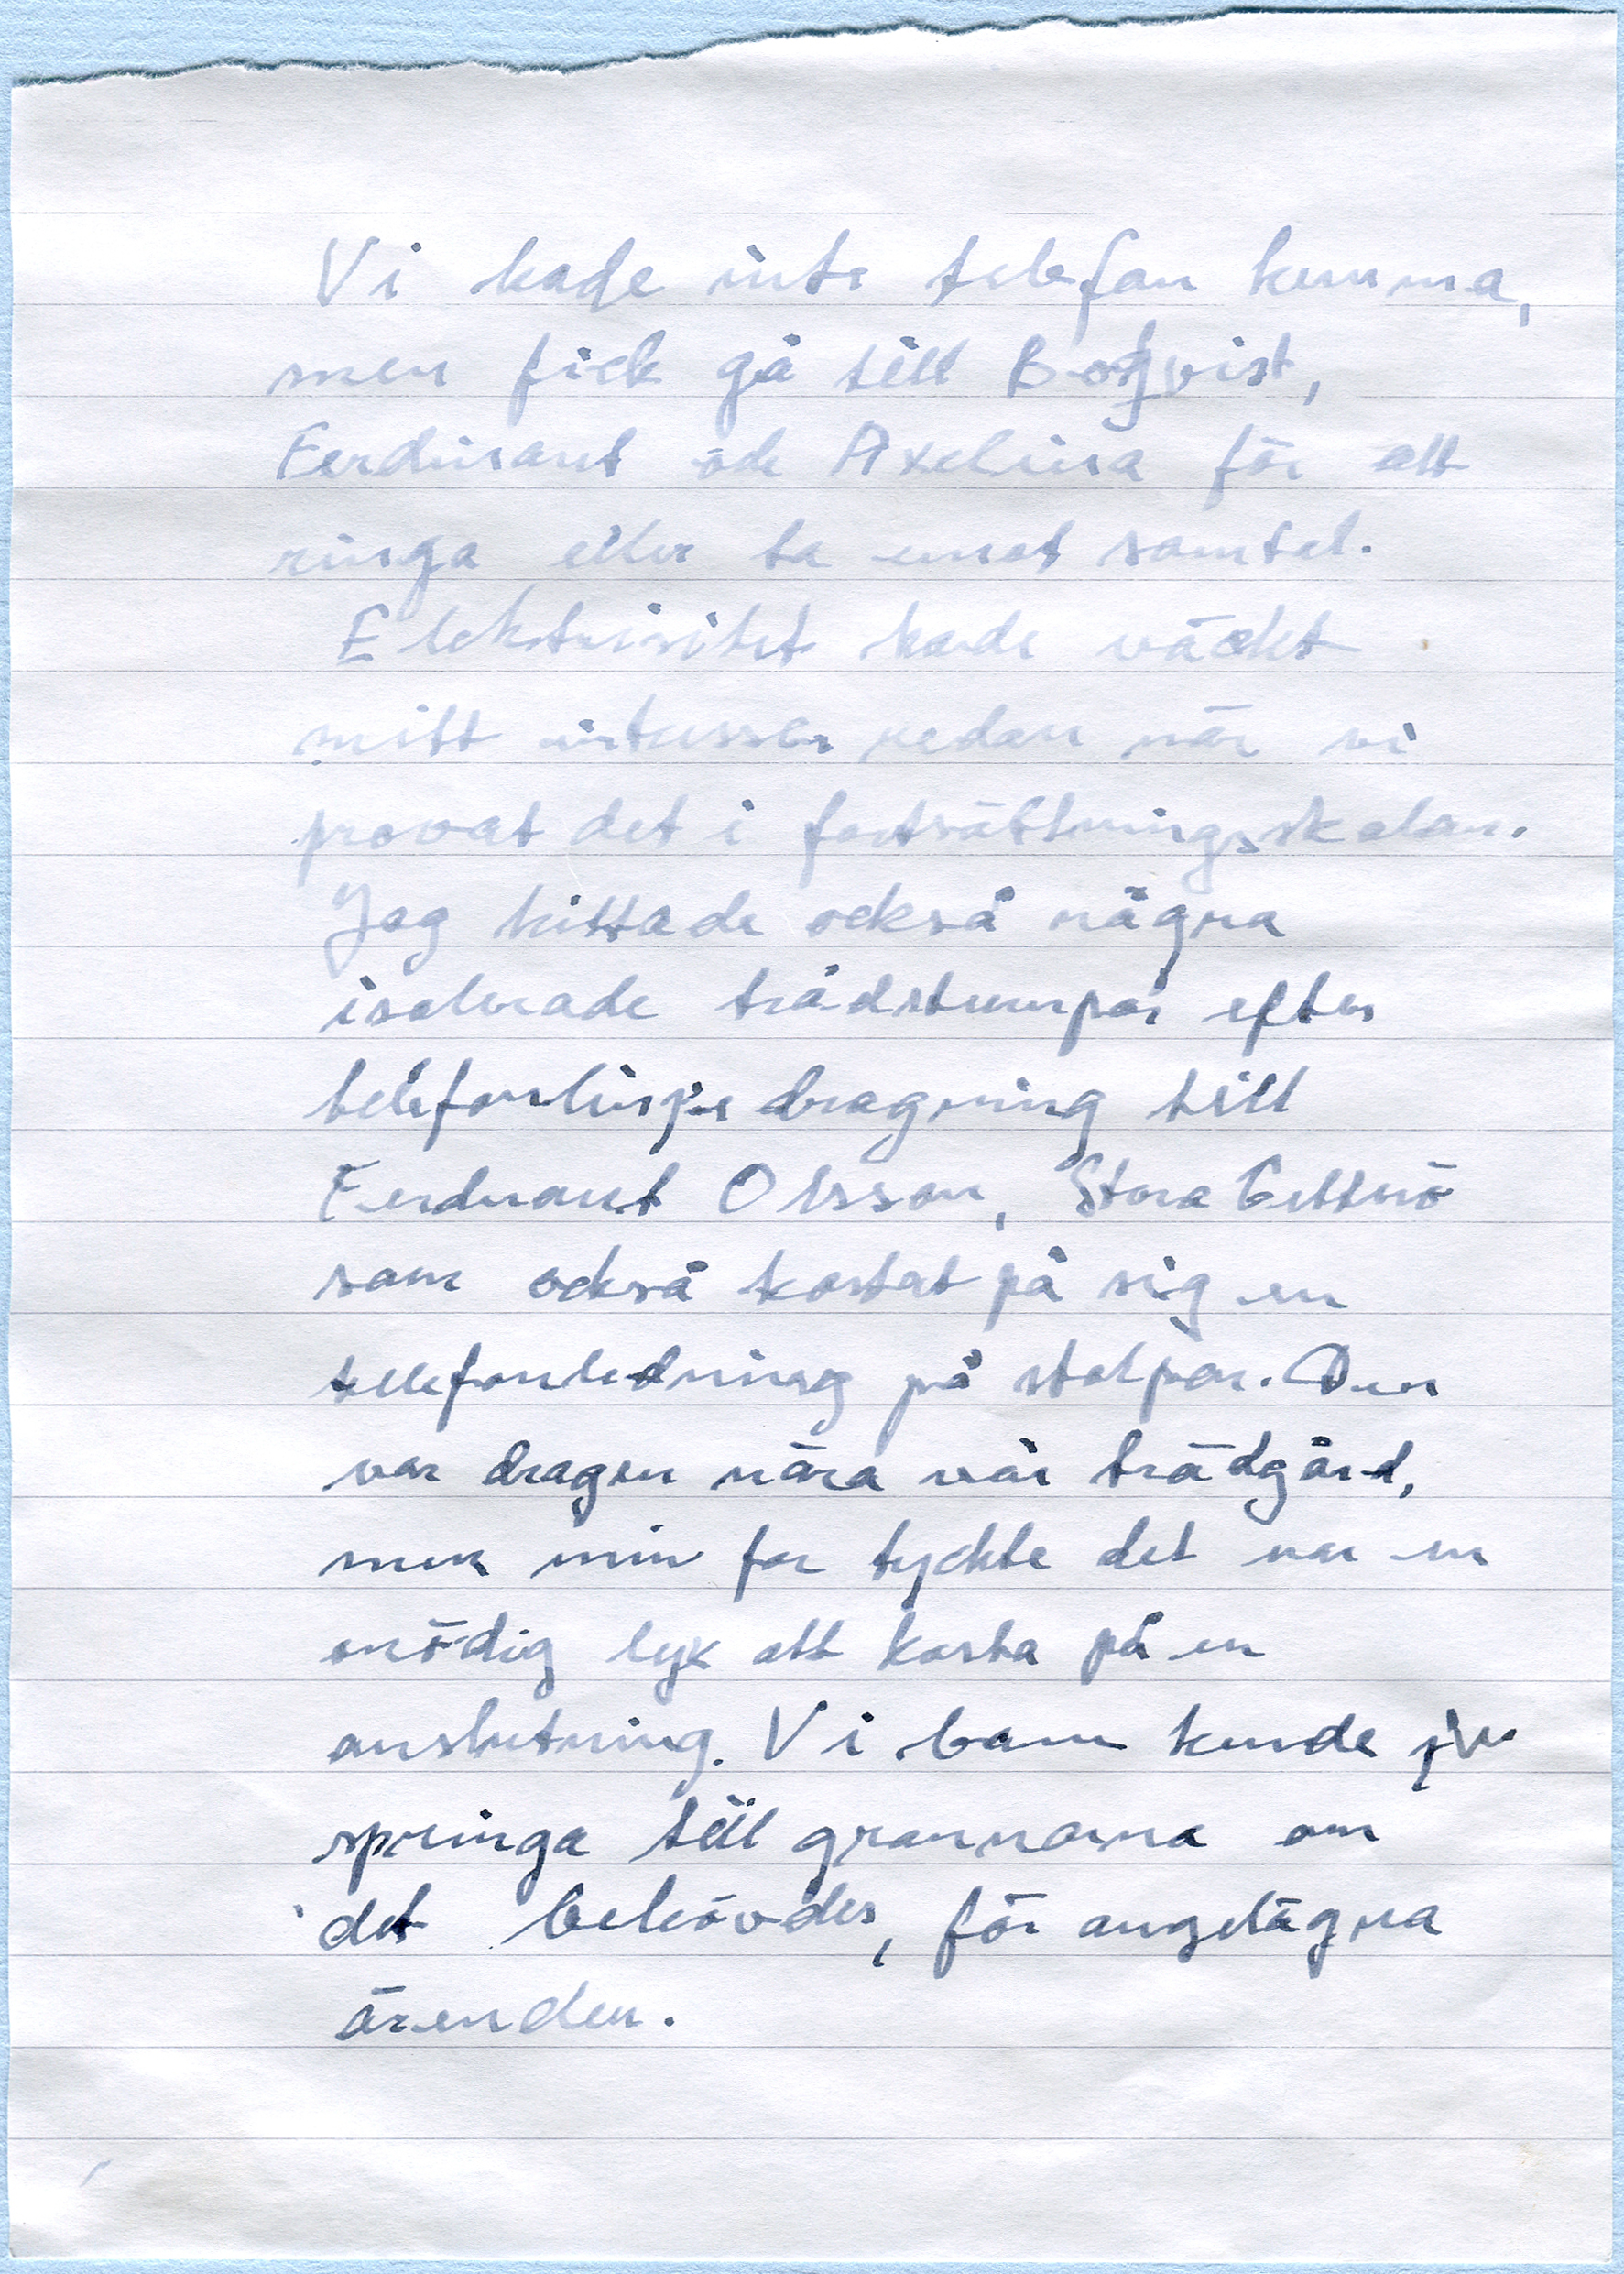 Vi hade inte telefon hemma,
men fick gå till Boqvist,
Ferdinant och Axelina för att
ringa eller ta emot samtal.
Elektrisitet hade väckt
mitt intresse redan när vi
provat det i fortsättningsskolan.
Jag hittade också några
isolerade trådstumpar efter
telefonlinje dragning till
Ferdinant Olsson, Stora
som också kostat på sig en
telefonledning på stolpar. Den
var dragen nära vår trädgård,
men min far tyckte det var en
onödig lyx att kosta på en
anslutning. Vi barn kunde ju
springa till grannarna om
det behövdes, för angelägna
ärenden.